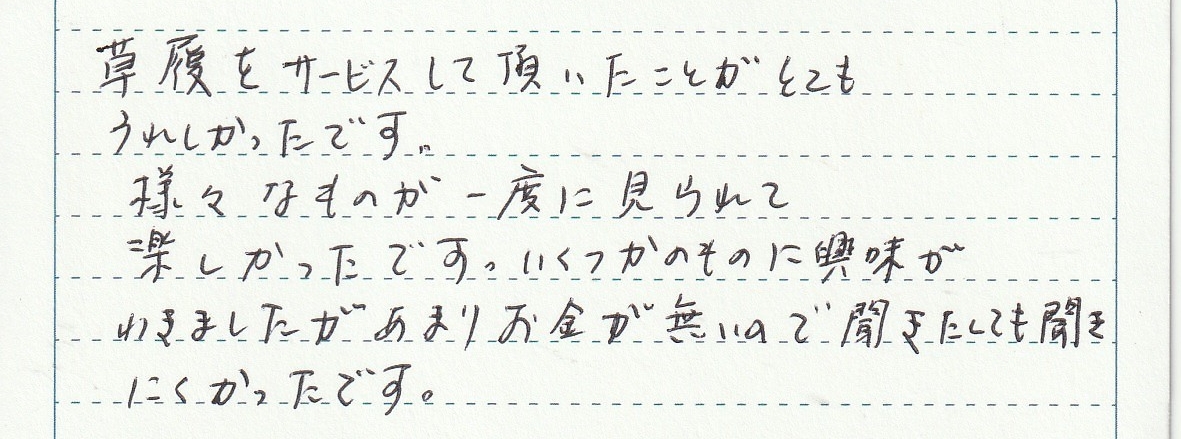 草履をサービスして頂いたことがとても
うれしかったです。
様々なものが一度に見られて
楽しかったです。いくつかのものに興味が
わきましたがあまりお金が無いので聞きたしても聞き
にくかったです。